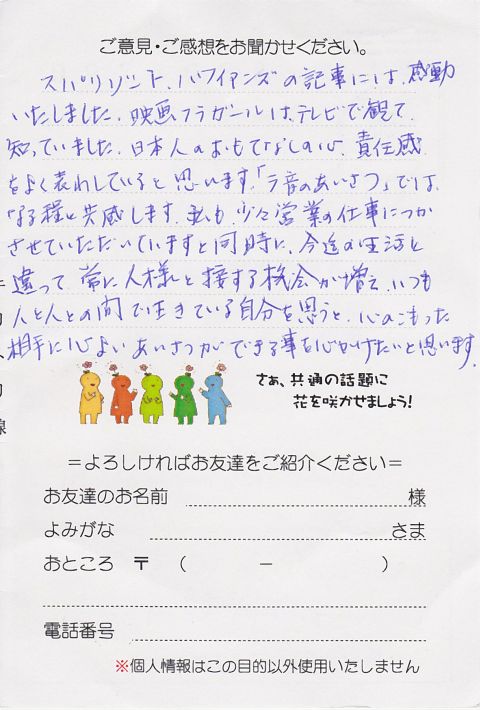 ご意見・ご感想をお聞かせください。
スパリゾート、ハワイアンズの記事には、感動
いたしました。映画フラガールは、テレビで観て
知っていました。日本人のおもてなしの心、責任感
をよく表わしていると思います。「ラ音のあいさつ」では、
なる程と共感します。私も少々営業の仕事につか
させていただいていますと同時に、今迄の生活と
違って常に人様と接する機会が増え、いつも
人と人との間で生きている自分を思うと、心のこもった
相手に心よいあいさつができる事を心がけたいと思います。
さぁ、共通の話題に
花を咲かせましょう!
=よろしければお友達をご紹介ください=
お友達のお名前 様
よみがな さま
おところ 〒 ( − )
電話番号
※個人情報はこの目的以外使用いたしません
線